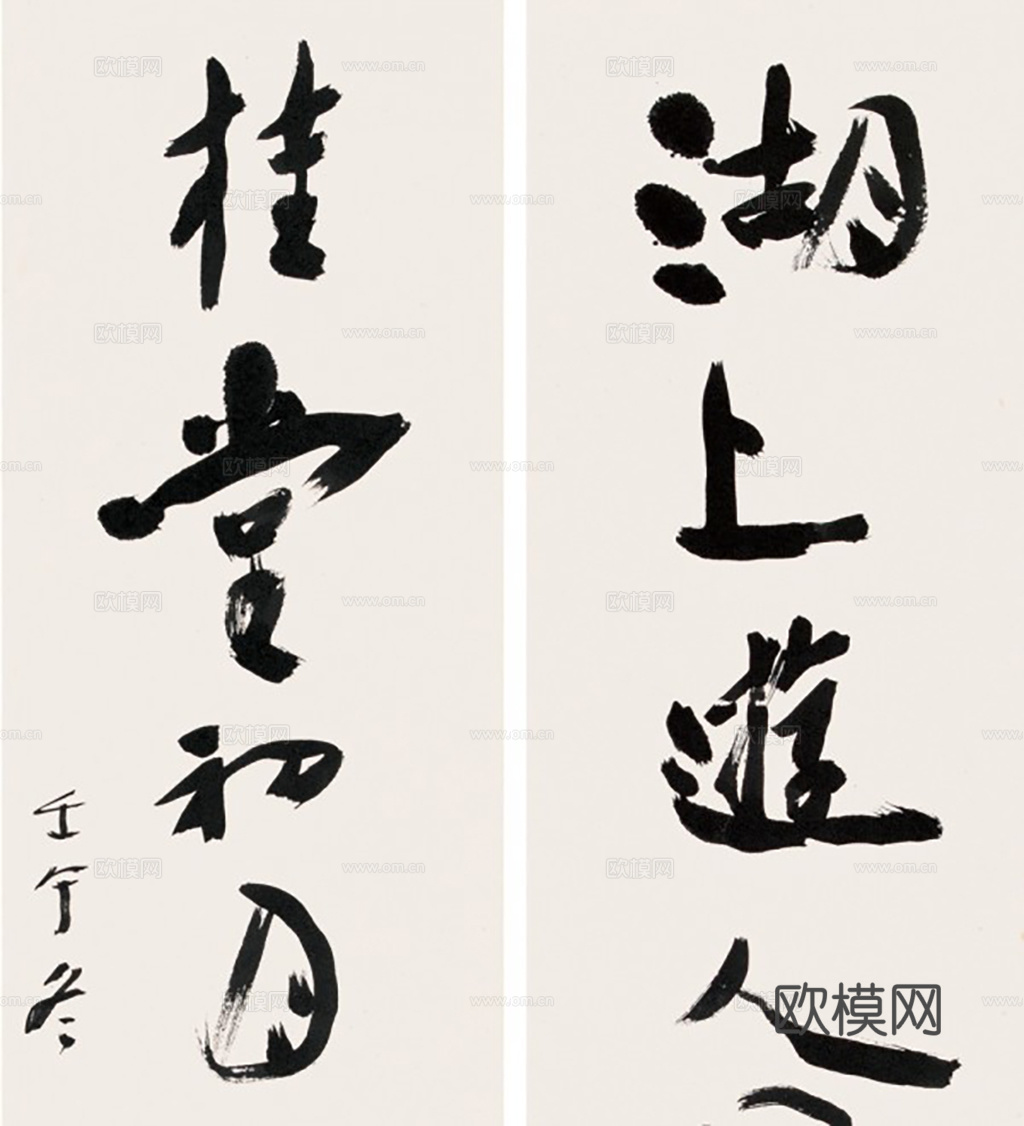 湖上遊人
桂堂初月
壬午冬
欧模网
www.om.cn